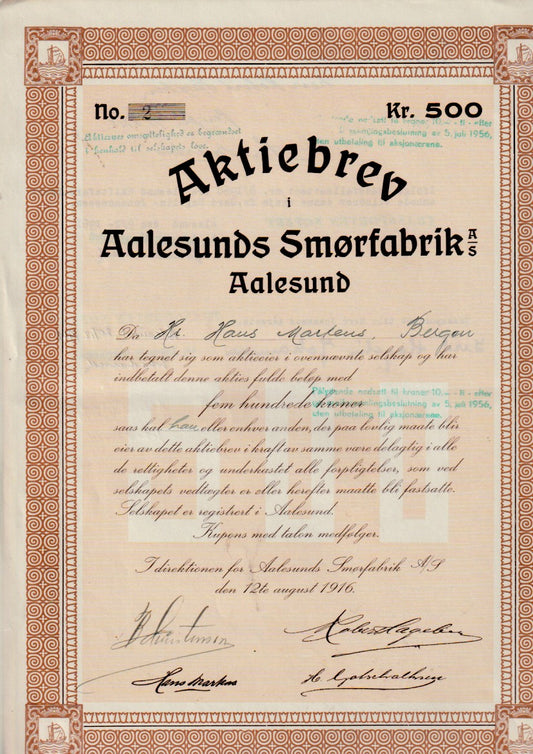 No. 2
Kr. 500
Aktiernes omsyttelighed er begrænset
i henhold til selskapets love.
nedsatt til kroner 10.- - ti - efter
beslutning av 5. juli 1956,
uten utbetaling til aksjonærene.
Aktiebrev
i
Aalesunds Smørfabrik A/S
Aalesund
Da Hr. Hans Martens, Bergen
har tegnet sig som aktieeier i ovennævnte selskap og har
indbetalt denne akties fulde beløp med
fem hundrede kroner
Pålydende nedsatt til kroner 10.- - ti - efter
beslutning av 5. juli 1956,
uten utbetaling til aksjonærene.
saa skal han eller enhver anden, der paa lovlig maate blir
eier av dette aktiebrev i kraft av samme være delagtig i alle
de rettigheter og underkastet alle forpligtelser, som ved
selskapets vedtægter er eller herefter maatte bli fastsatte.
Selskapet er registrert i Aalesund.
Kupons med talon medfølger.
I direktionen for Aalesunds Smørfabrik A/S
den 12te august 1916.
Hans Martens